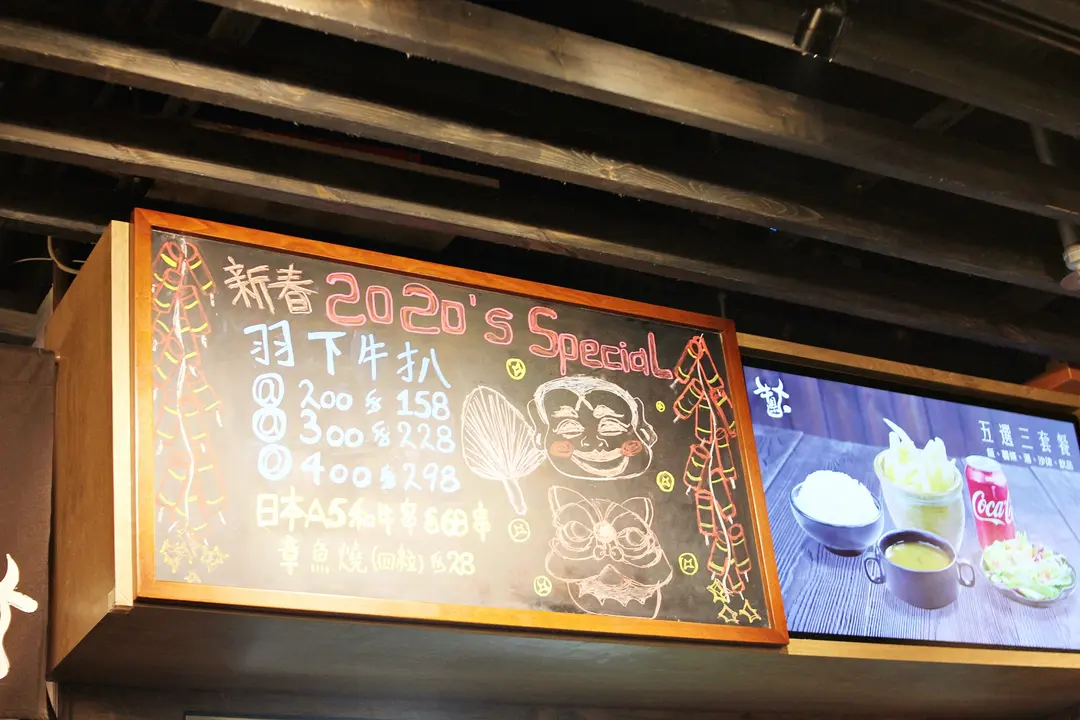 新春 2020's Special
羽下牛扒
@ 200g $ 158
@ 300g $ 228
@ 400g $ 298
日本A5和牛串 $68串
章魚燒(四粒) $28
五選三套餐
飯・麵條・湯・沙律・飲品
Coca